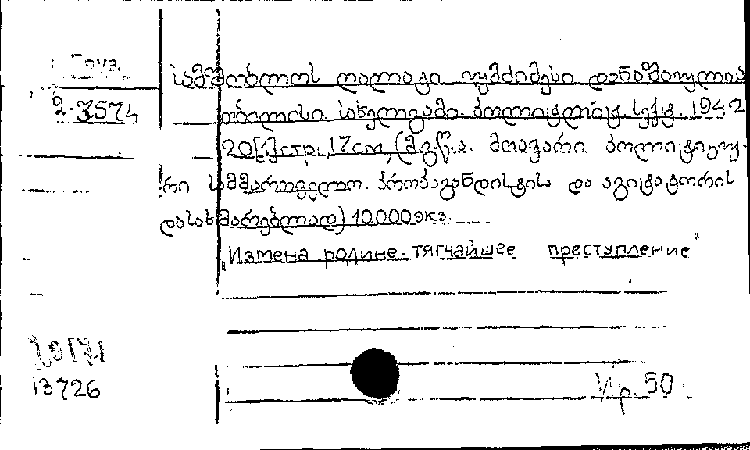 Груз.
2-3574
სამშობლოს ღალატი უმძიმესი დანაშაულია
თბილისი. სახელგამი. პოლიტლიტ. სექტ. 1942
20[1]стр., 17см, (მ.წ.ა. მთავარი პოლიტიკუ-
რი სამმართველო. პროპაგანდისტის და აგიტატორის
დასახმარებლად) 10.000 экз.
"Измена родине-тягчайшее преступление"
13726
Ир. 50